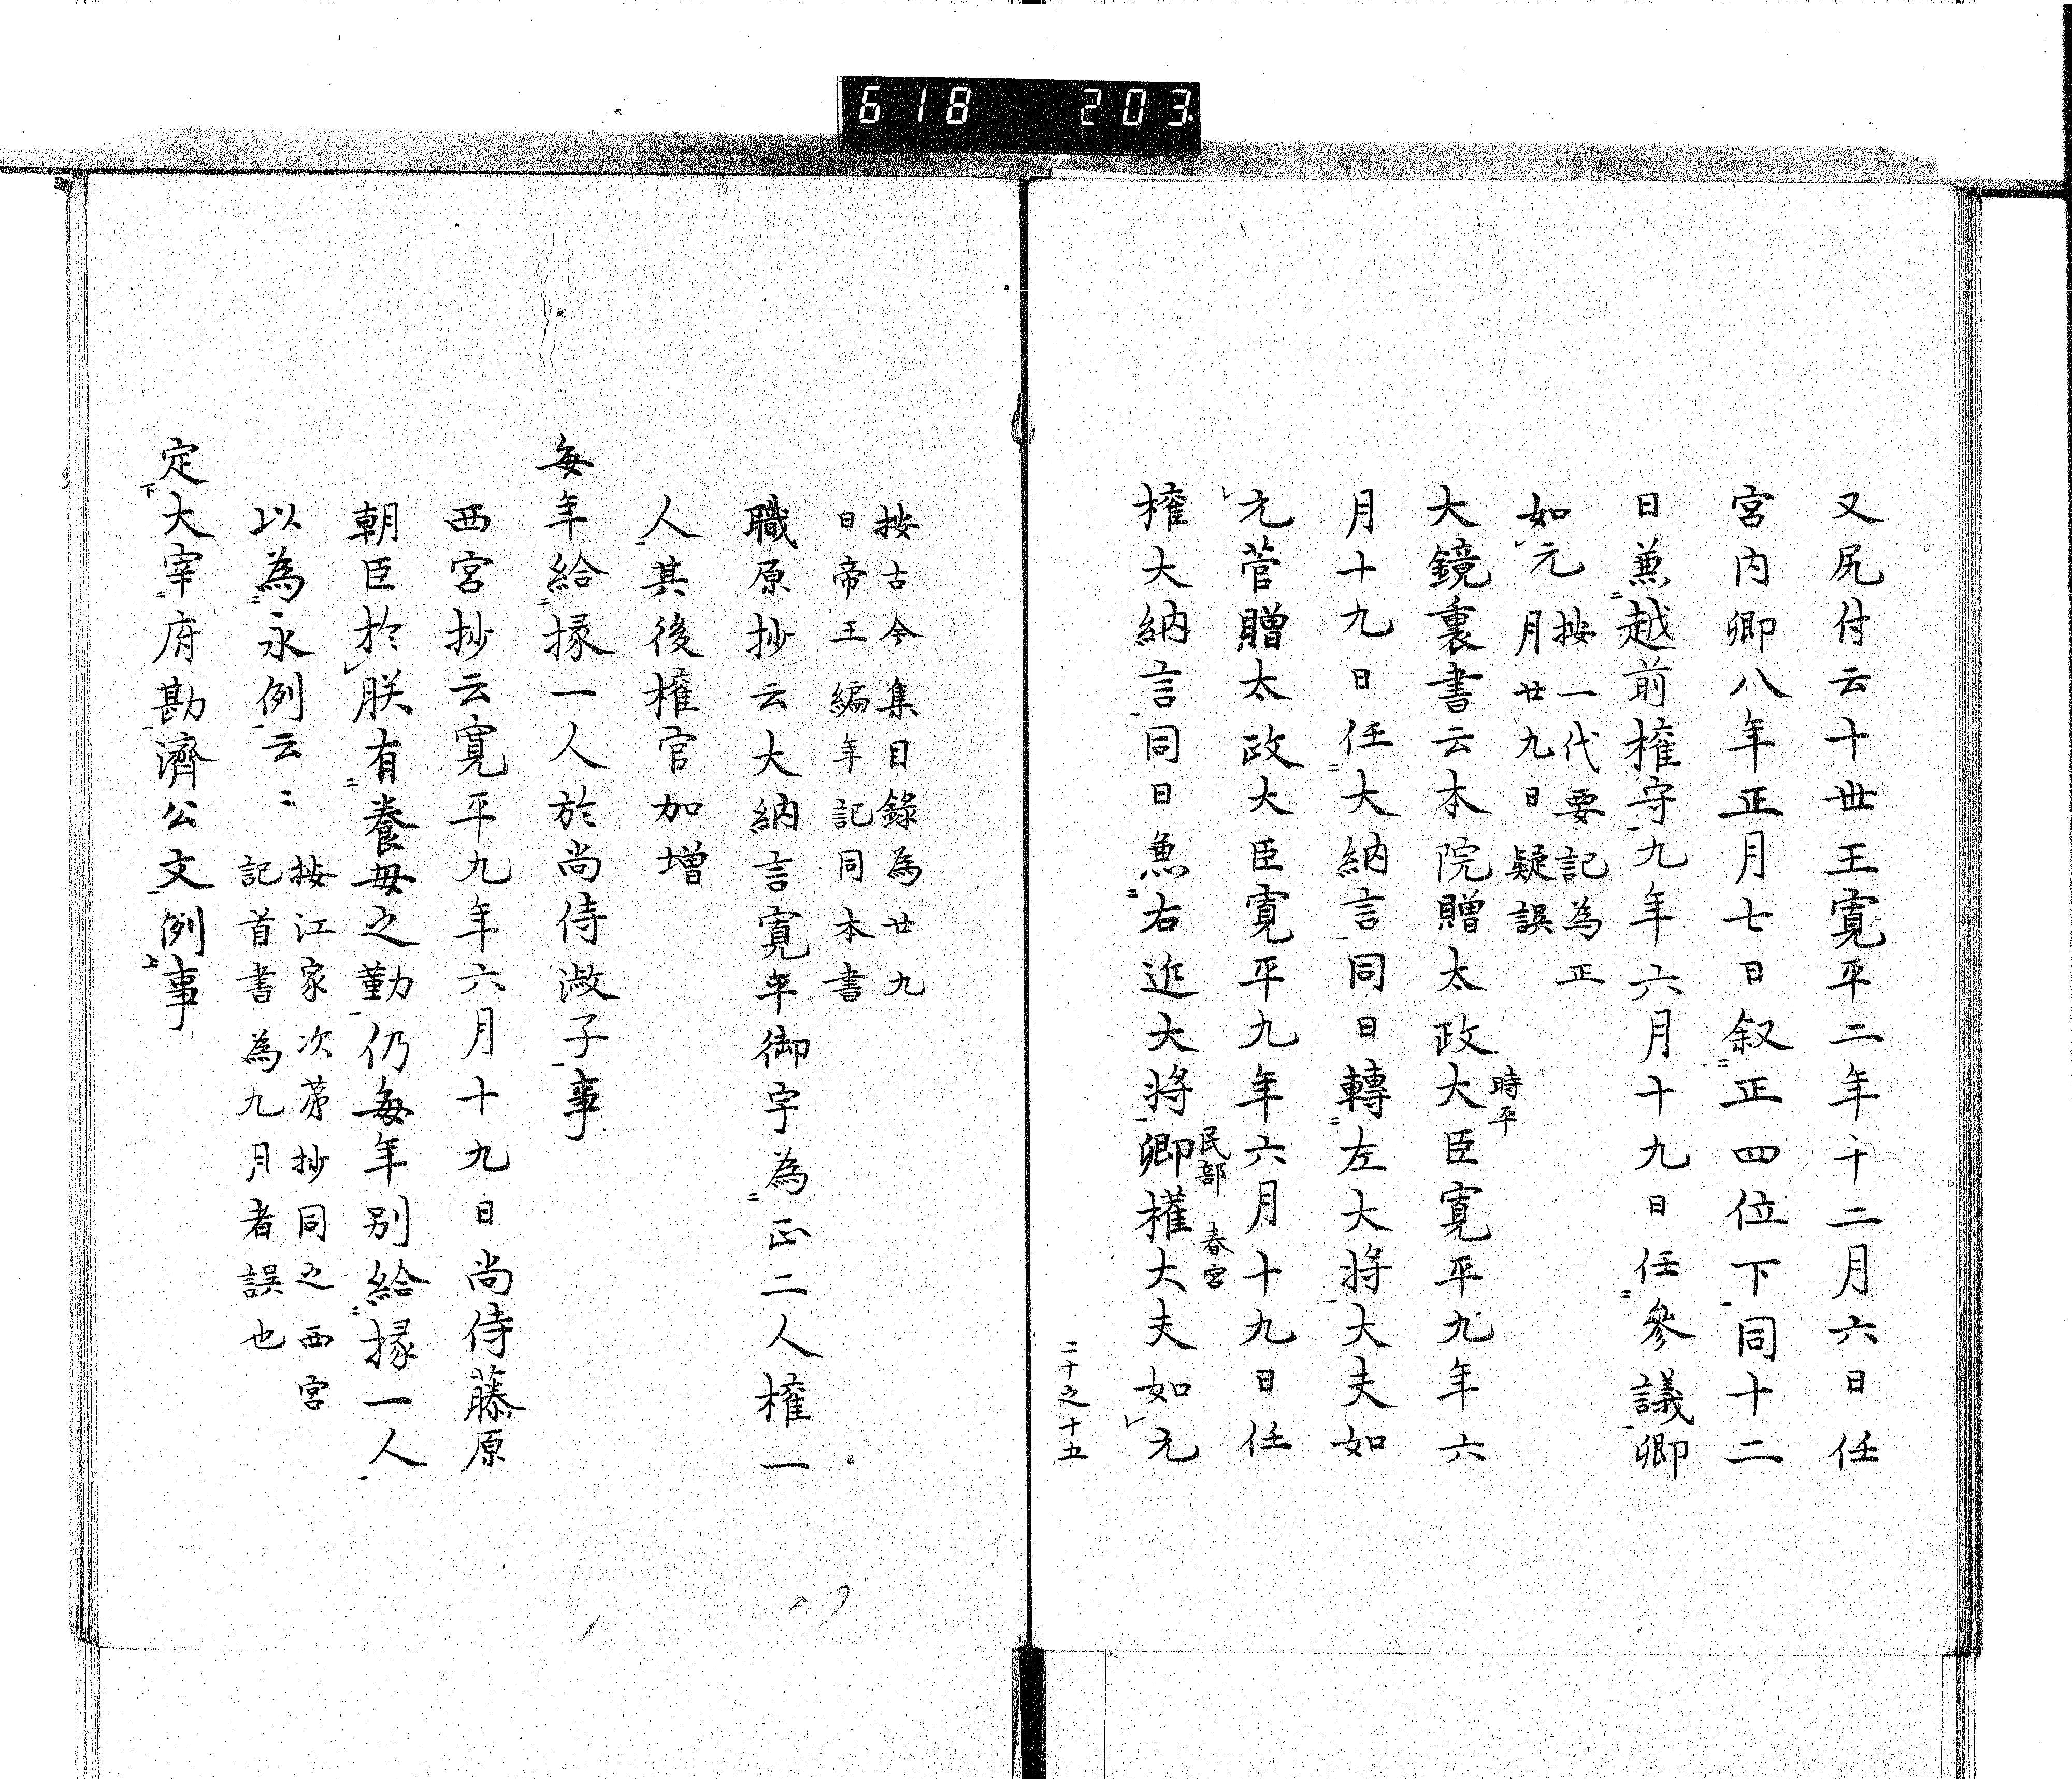 618 203.
又尻付云十世王寛平二年十二月六日任
宮内卿八年正月七日叙正四位下同十二
日兼越前権守九年六月十九日任参議卿
如元 按一代要記為正
月廿九日疑誤
大鏡裏書云本院贈太政大臣寛平九年六
時平
月十九日任大納言同日轉左大将大夫如
元菅贈太政大臣寛平九年六月十九日任
権大納言同日兼右近大将卿権大夫如元
民部 春宮
二十之十五
按古今集目録為廿九
日帝王編年記同本書
職原抄云大納言寛平御宇為正二人権一
人其後権官加増
毎年給掾一人於尚侍淑子事
西宮抄云寛平九年六月十九日尚侍藤原
朝臣於朕有養母之勤仍毎年別給掾一人
以為永例云〻 按江家次苐抄同之西宮
記首書為九月者誤也
定大宰府勘濟公文例事